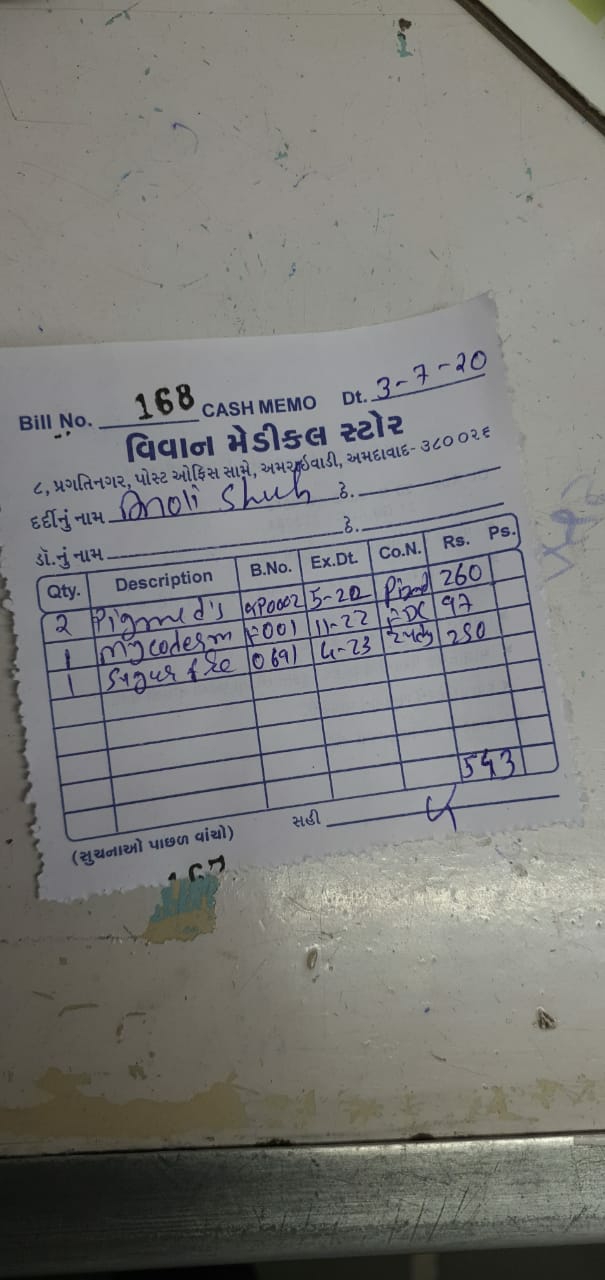 Bill No. 168 CASH MEMO Dt. 3-7-20
વિવાન મેડીકલ સ્ટોર
૮, પ્રગતિનગર, પોસ્ટ ઓફિસ સામે, અમરાઈવાડી, અમદાવાદ- ૩૮૦૦૨૬
દર્દીનું નામ Anoli Shuh ઠે.
ડૉ.નું નામ ઠે.
Qty. Description B.No. Ex.Dt. Co.N. Rs. Ps.
2 Pigmed's 5-20 260
1 Mycoderm F001 11-22 FDC 97
1 Sugur fre 0691 4-23
543
(સુચનાઓ પાછળ વાંચો) સહી
167